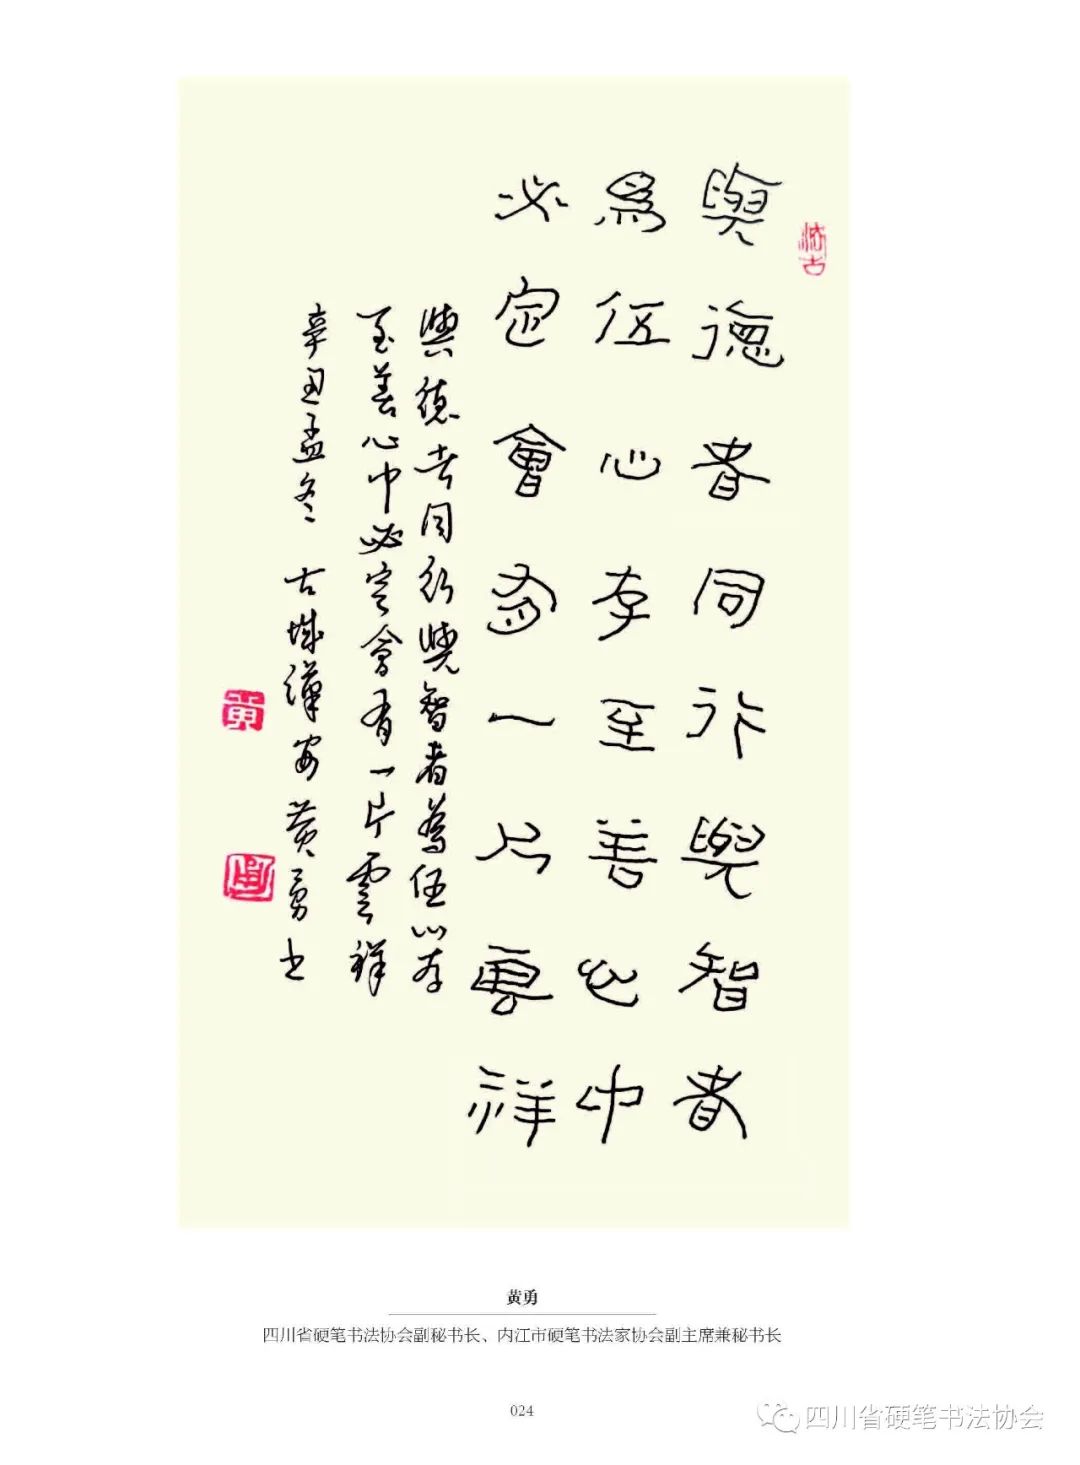 與德者同行與智者
爲伍心存至善心中
必定會有一片雲祥
與德者同行與智者為伍心存
至善心中必定會有一片雲祥
辛丑孟冬 古城漢安黄勇书
黄勇
四川省硬笔书法协会副秘书长、内江市硬笔书法家协会副主席兼秘书长
024
四川省硬笔书法协会